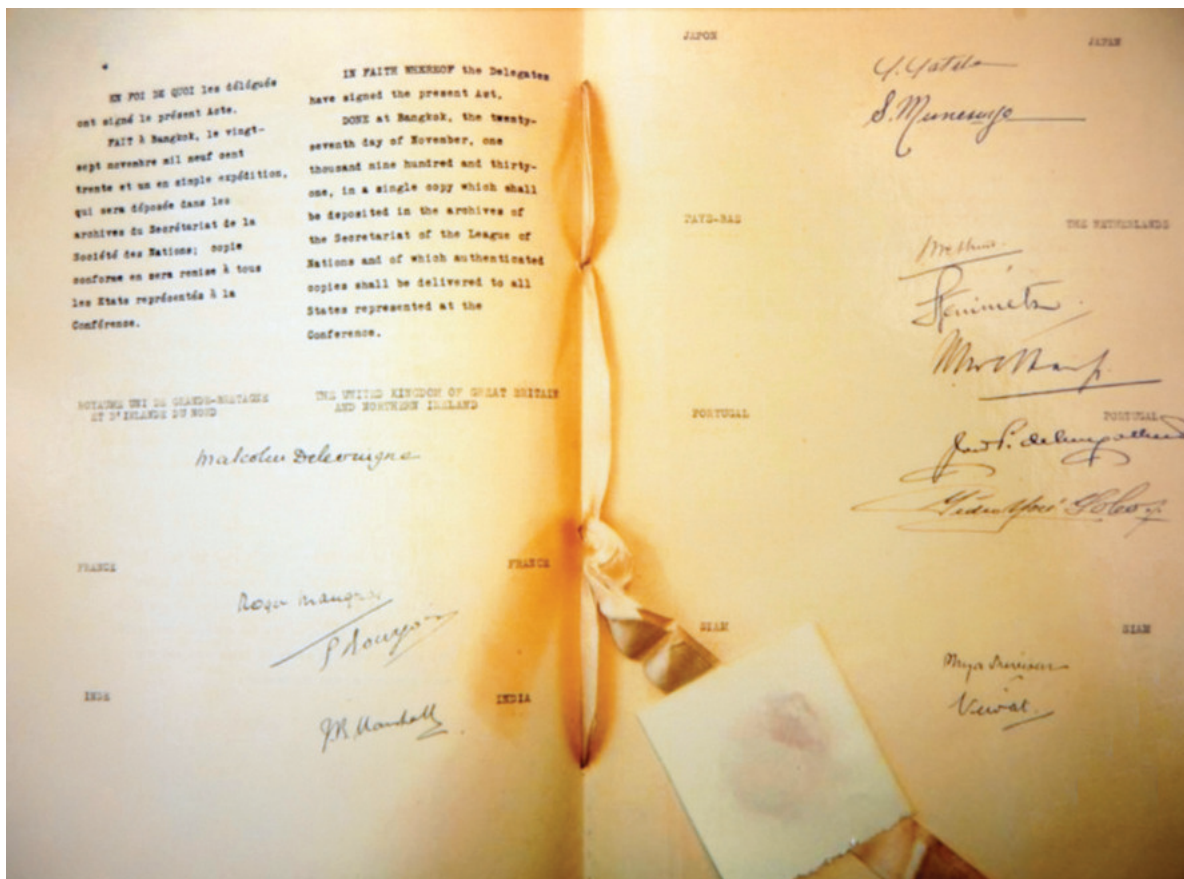 EN FOI DE QUOI les délégués
ont signé le présent Acte.
FAIT à Bangkok, le vingt-
sept novembre mil neuf cent
trente et un en simple expédition,
qui sera déposée dans les
archives du Secrétariat de la
Société des Nations; copie
conforme en sera remise à tous
les Etats représentés à la
Conférence.
IN FAITH WHEREOF the Delegates
have signed the present Act.
DONE at Bangkok, the twenty-
seventh day of November, one
thousand nine hundred and thirty-
one, in a single copy which shall
be deposited in the archives of
the Secretariat of the League of
Nations and of which authenticated
copies shall be delivered to all
States represented at the
Conference.
ROYAUME UNI DE GRANDE-BRETAGNE
ET D'IRLANDE DU NORD
THE UNITED KINGDOM OF GREAT BRITAIN
AND NORTHERN IRELAND
Malcolm Delevingne
FRANCE
FRANCE
Roger
INDE
INDIA
JAPON
JAPAN
PAYS-BAS
THE NETHERLANDS
PORTUGAL
PORTUGAL
SIAM
SIAM